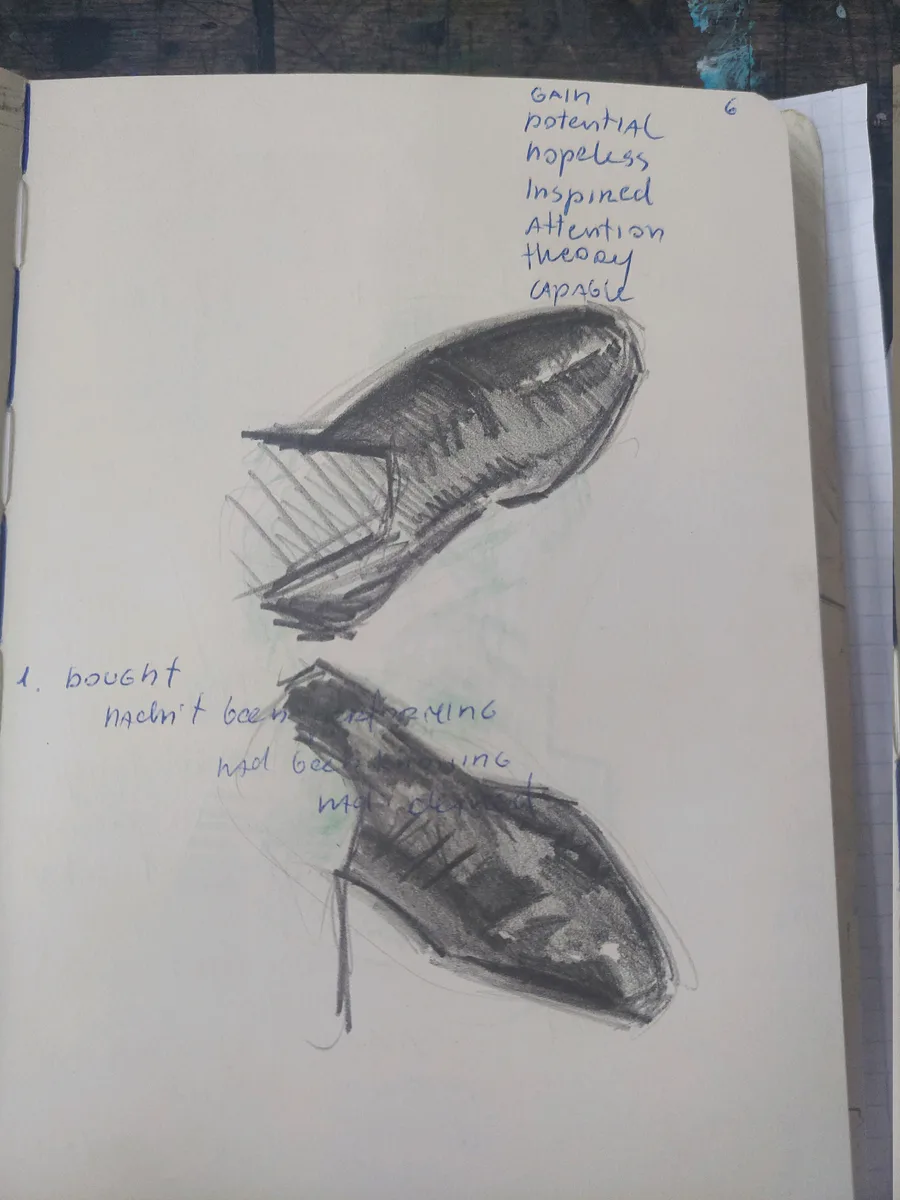 6
GAIn
potentiAL
hopeless
Inspired
Attention
theory
CApAGle
1. bought
hAdn't been
hAd been
hAd